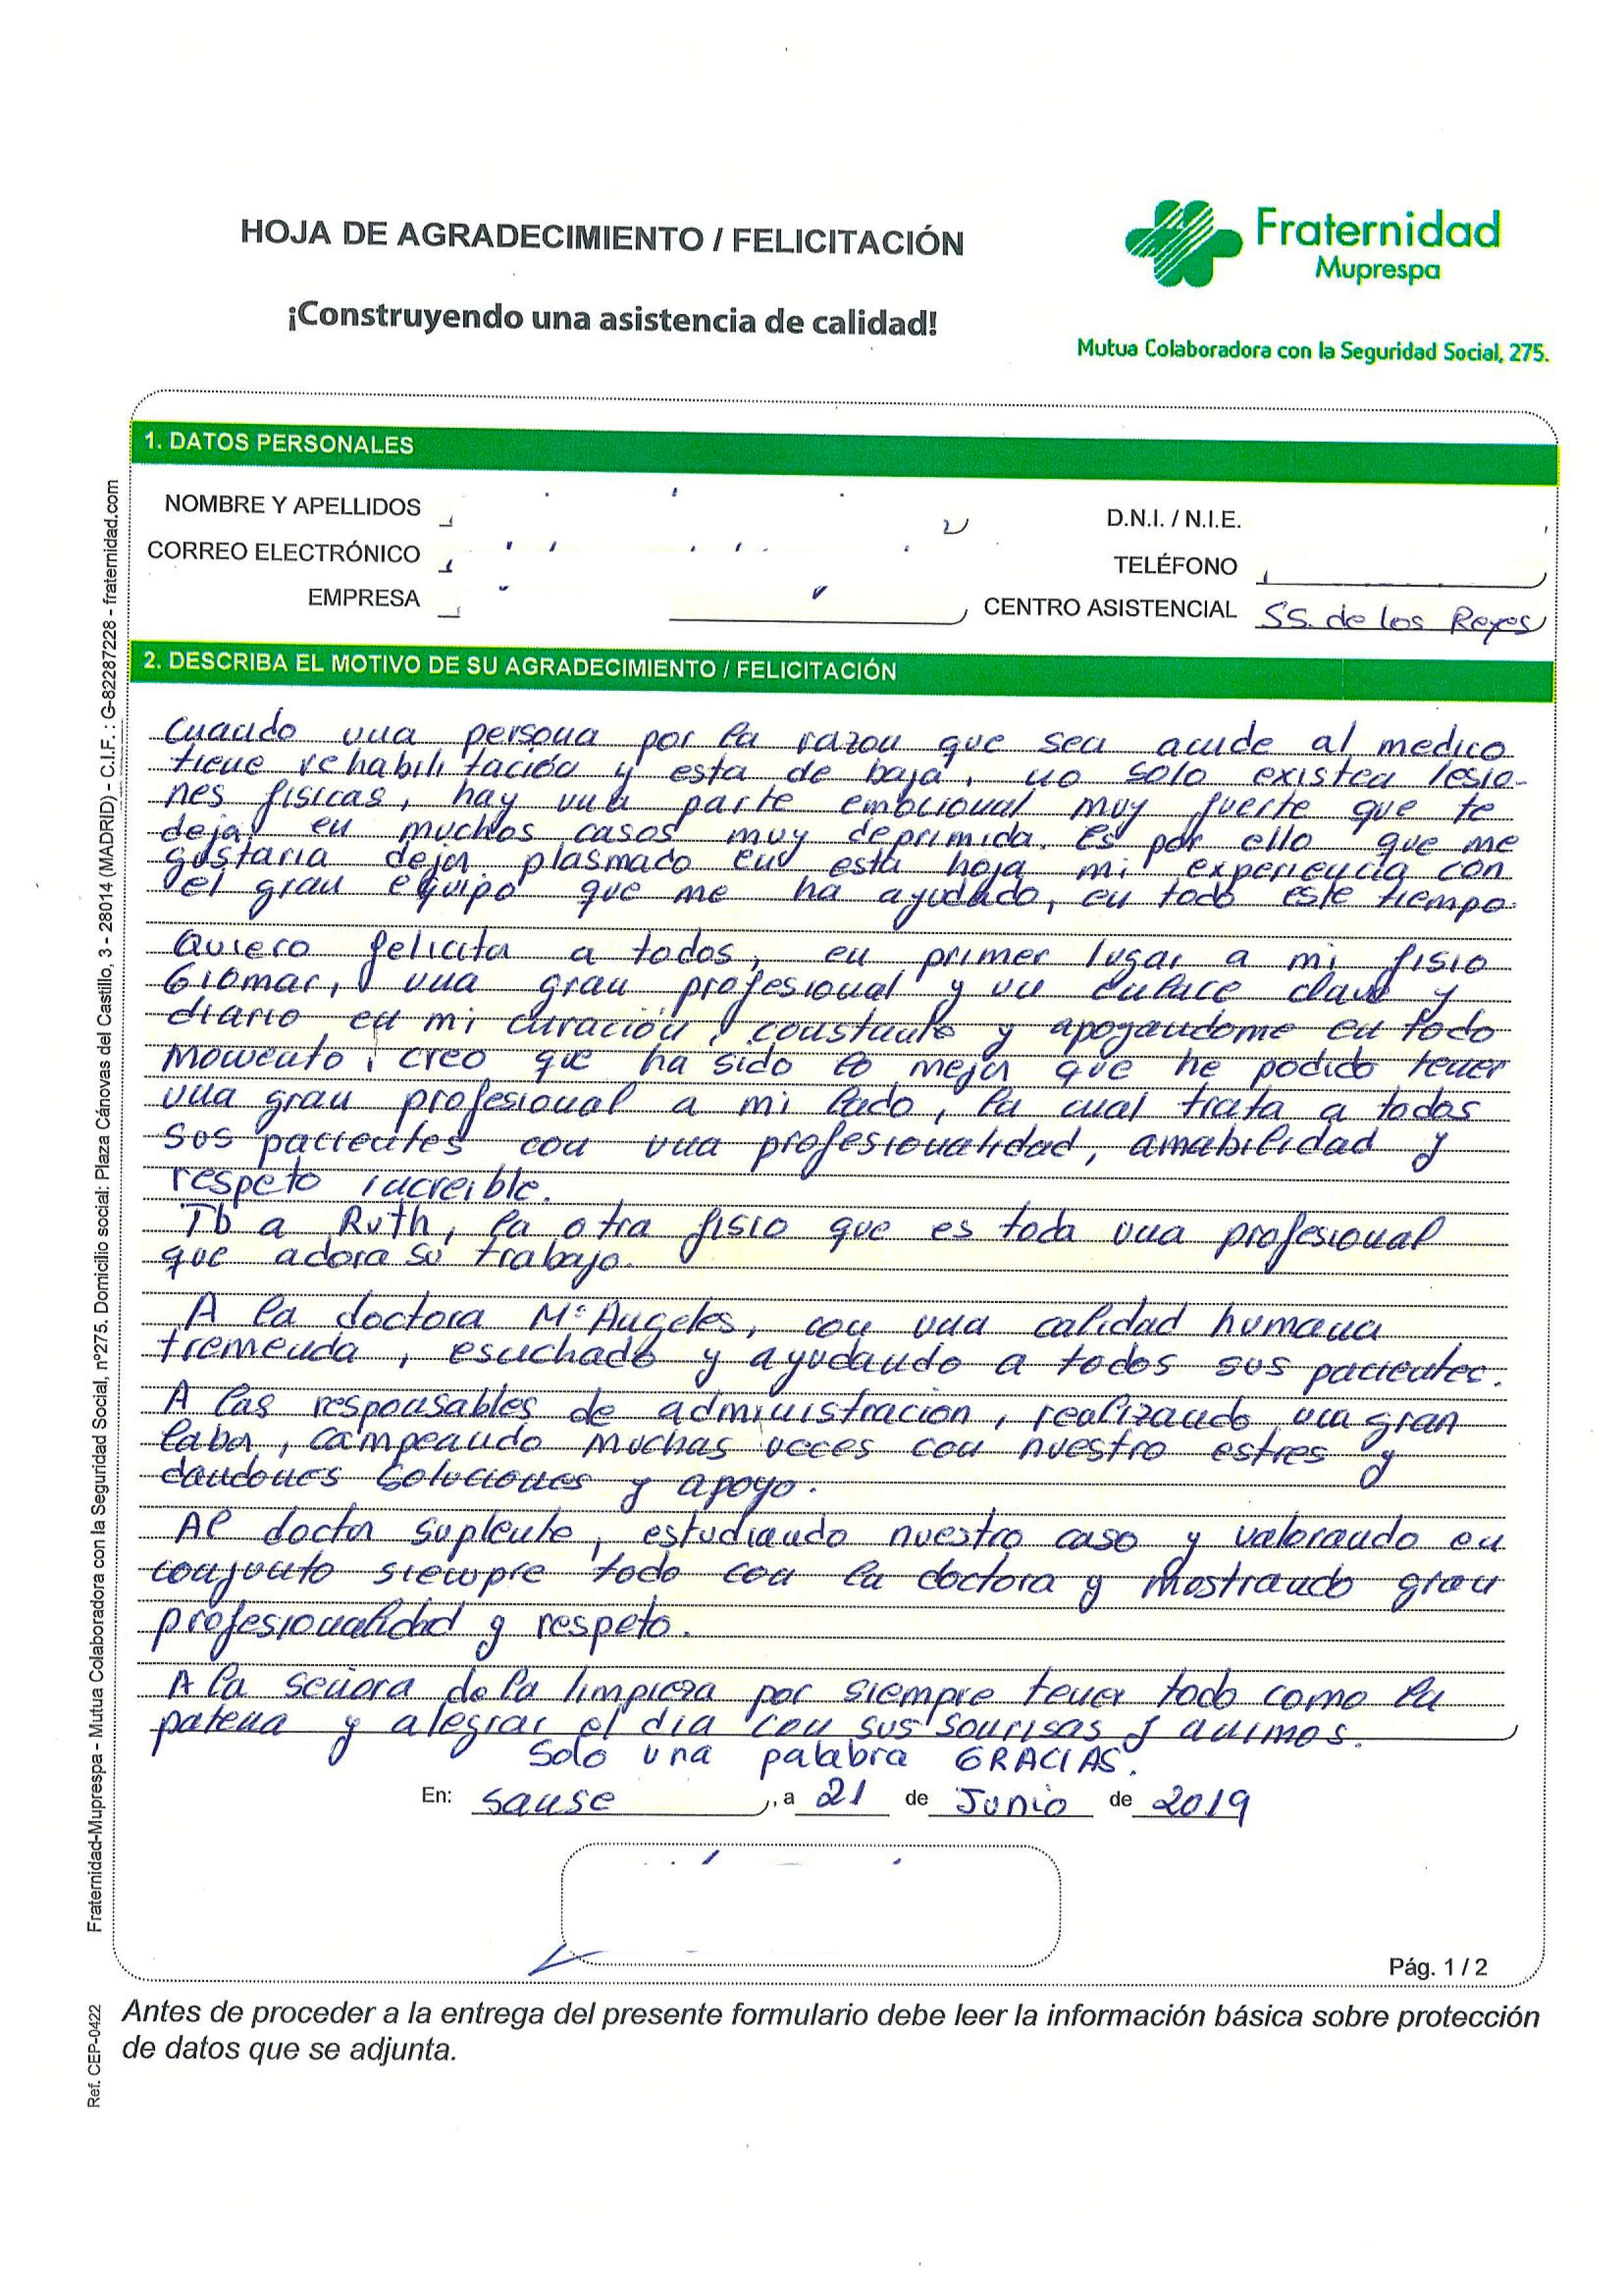 HOJA DE AGRADECIMIENTO / FELICITACIÓN
¡Construyendo una asistencia de calidad!
Fraternidad
Muprespa
Mutua Colaboradora con la Seguridad Social, 275.
1. DATOS PERSONALES
NOMBRE Y APELLIDOS
D.N.I. / N.I.E.
CORREO ELECTRÓNICO
TELÉFONO
EMPRESA
CENTRO ASISTENCIAL SS. de los Reyes
2. DESCRIBA EL MOTIVO DE SU AGRADECIMIENTO / FELICITACIÓN
Cuando una persona por la razon que sea acude al medico
tiene rehabilitación y esta de baja, no solo existen lesio-
nes fisicas, hay una parte emocional muy fuerte que te
deja, en muchos casos muy deprimida. Es por ello que me
gustaria dejar plasmado en esta hoja mi experiencia con
el gran equipo que me ha ayudado, en todo este tiempo.
Quiero felicitar a todos, en primer lugar a mi fisio
Giomar, una gran profesional y un enlace clave y
diario en mi curación, constante y apoyandome en todo
momento, creo que ha sido lo mejor que he podido tener
una gran profesional a mi lado, la cual trata a todos
sus pacientes con una profesionalidad, amabilidad y
respeto increible.
Tb a Ruth, la otra fisio que es toda una profesional
que adora su trabajo.
A la doctora Mª Angeles, con una calidad humana
tremenda, escuchado y ayudando a todos sus pacientes.
A las responsables de administración, realizando una gran
labor, campeando muchas veces con nuestro estres y
dandones soluciones y apoyo.
Al doctor suplente, estudiando nuestro caso y valorando en
conjunto siempre todo con la doctora y mostrando gran
profesionalidad y respeto.
A la señora de la limpieza por siempre tener todo como la
patena y alegrar el dia con sus sonrisas y animos.
Solo una palabra GRACIAS.
En: Sanse, a 21 de Junio de 2019
Pág. 1 / 2
Antes de proceder a la entrega del presente formulario debe leer la información básica sobre protección
de datos que se adjunta.
Fraternidad-Muprespa - Mutua Colaboradora con la Seguridad Social, nº275. Domicilio social: Plaza Cánovas del Castillo, 3 - 28014 (MADRID) - C.I.F. : G-82287228 - fraternidad.com
Ref. CEP-0422